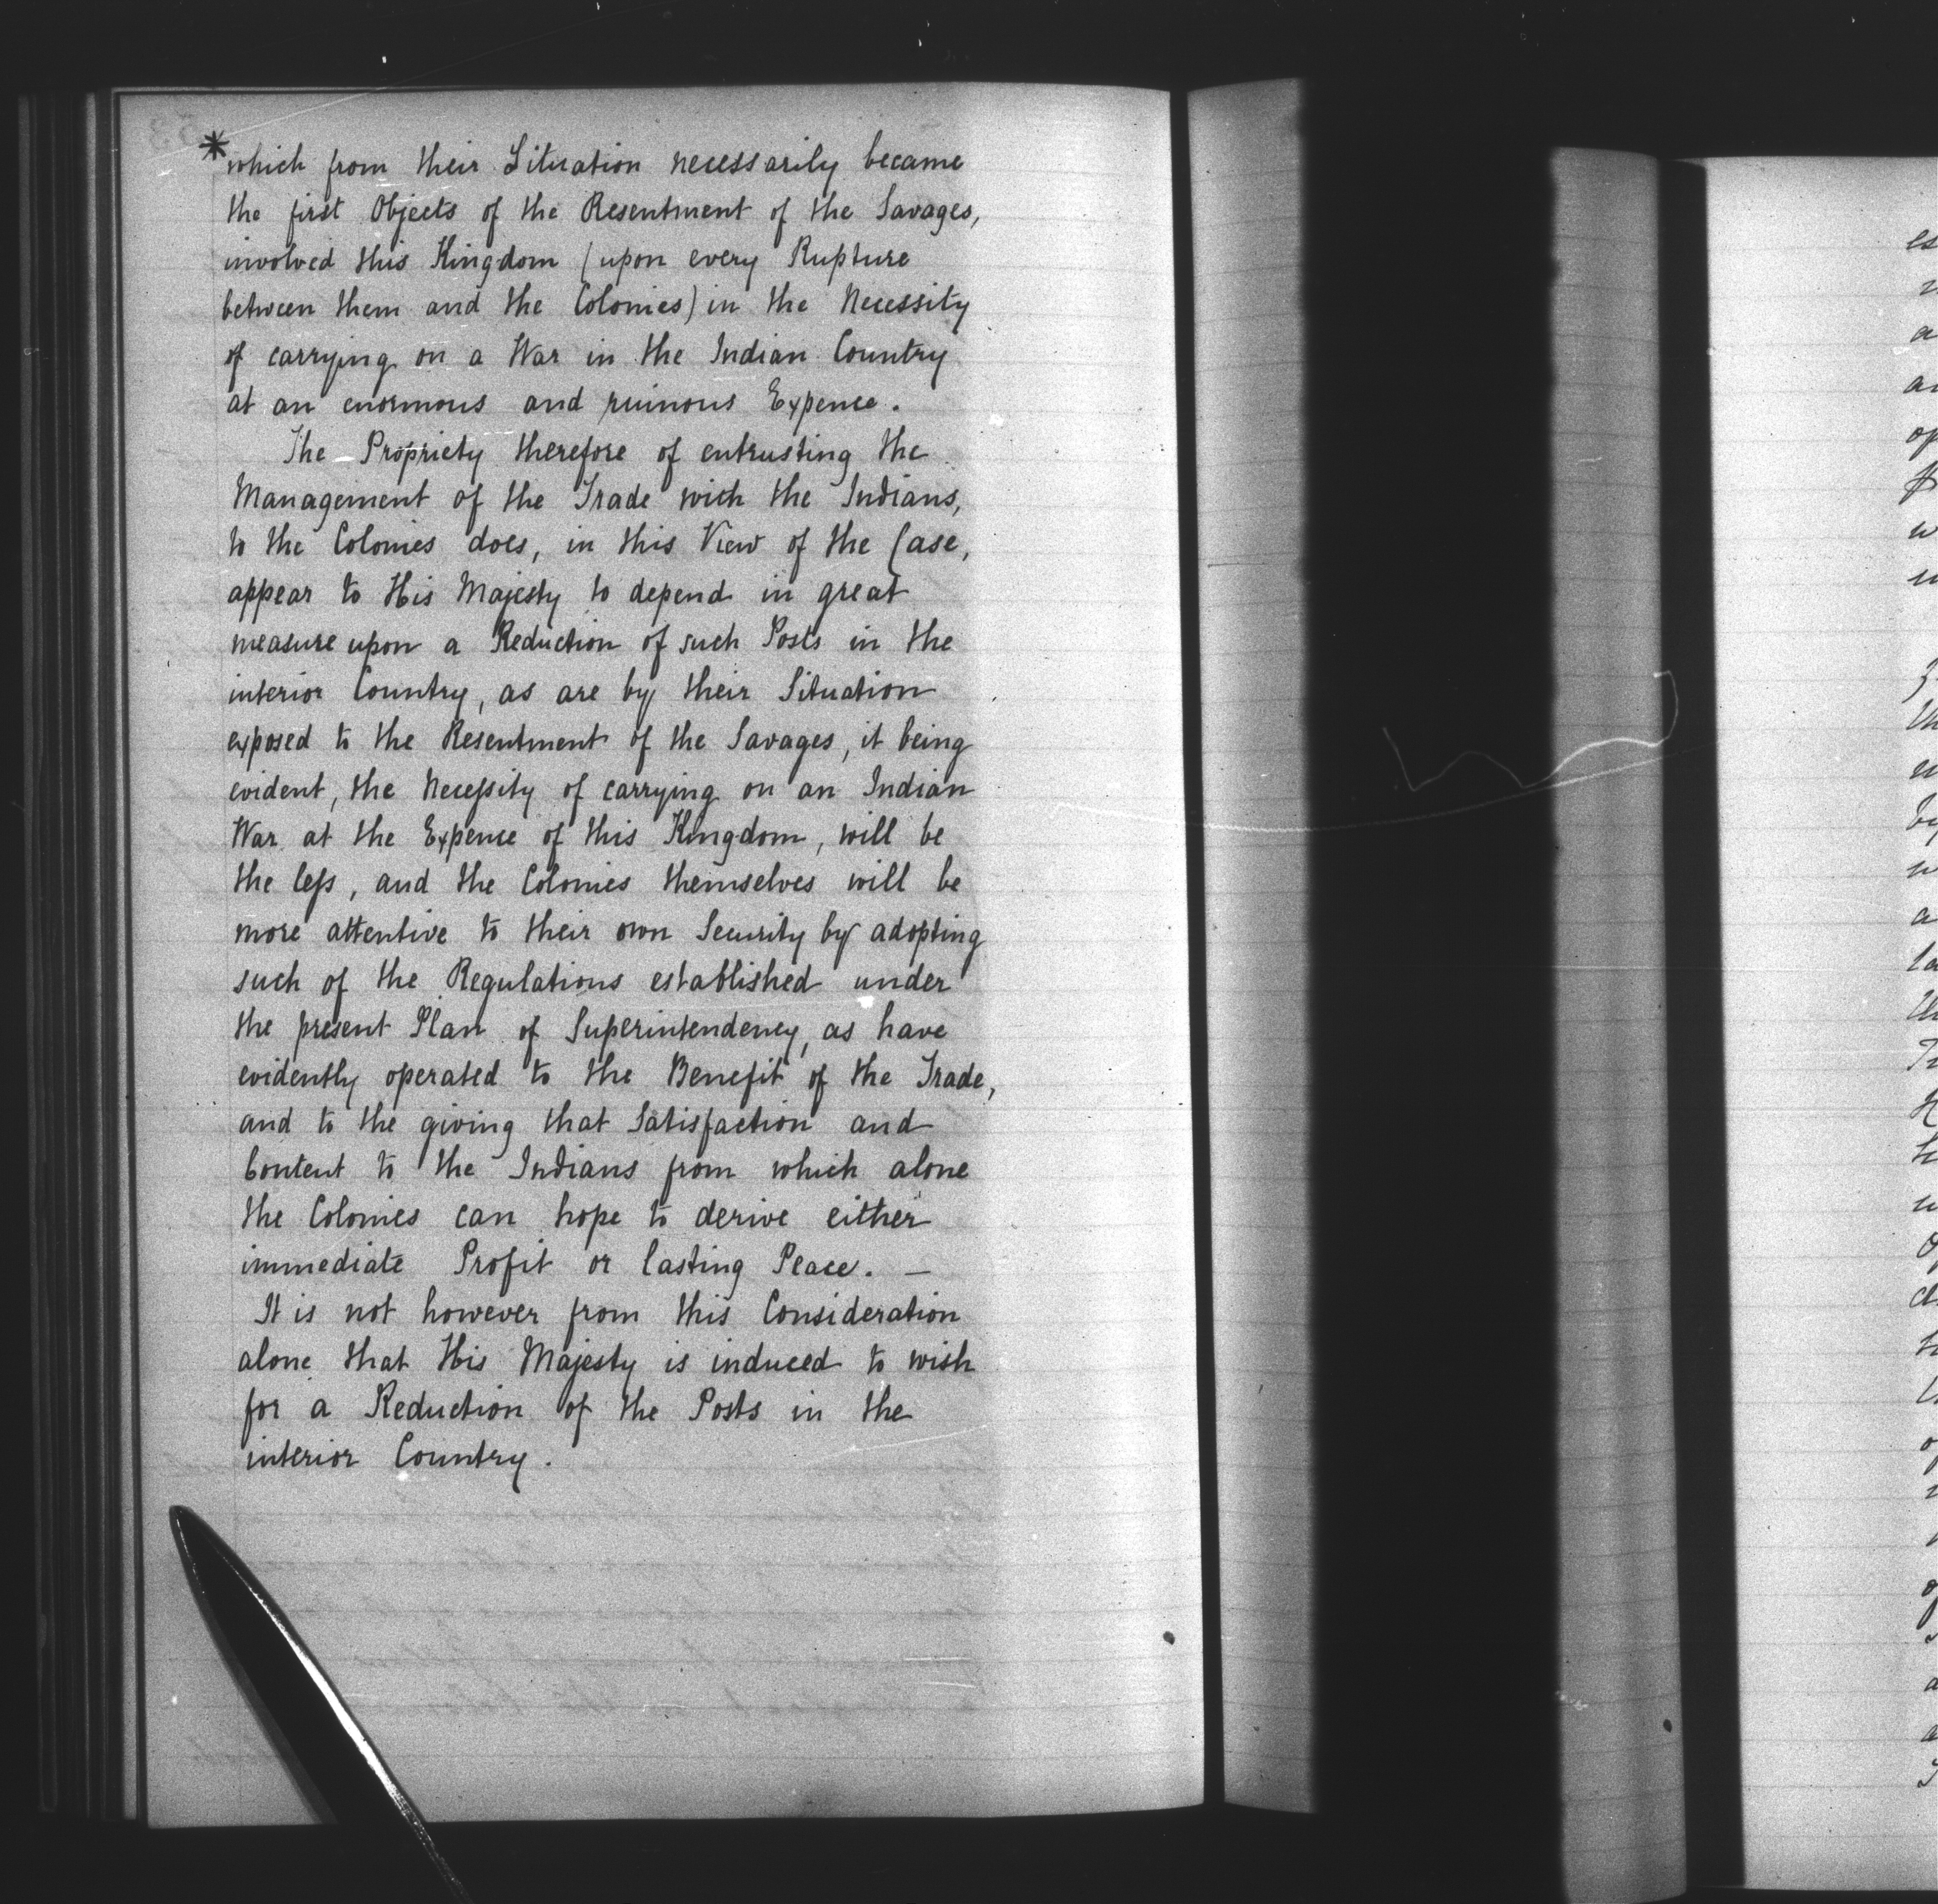 *which from their Situation necessarily became
the first Objects of the Resentment of the Savages,
involved this Kingdom (upon every Rupture
between them and the Colonies) in the Necessity
of carrying on a War in the Indian Country
at an enormous and ruinous Expence.
The Propriety therefore of entrusting the
Management of the Trade with the Indians,
to the Colonies does, in this View of the Case,
appear to His Majesty to depend in great
measure upon a Reduction of such Posts in the
interior Country, as are by their Situation
exposed to the Resentment of the Savages, it being
evident, the Neceſsity of carrying on an Indian
War at the Expence of this Kingdom, will be
the leſs, and the Colonies themselves will be
more attentive to their own Security by adopting
such of the Regulations established under
the present Plan of Superintendency, as have
evidently operated to the Benefit of the Trade,
and to the giving that Satisfaction and
Content to the Indians from which alone
the Colonies can hope to derive either
immediate Profit or lasting Peace. —
It is not however from this Consideration
alone that His Majesty is induced to wish
for a Reduction of the Posts in the
interior Country.